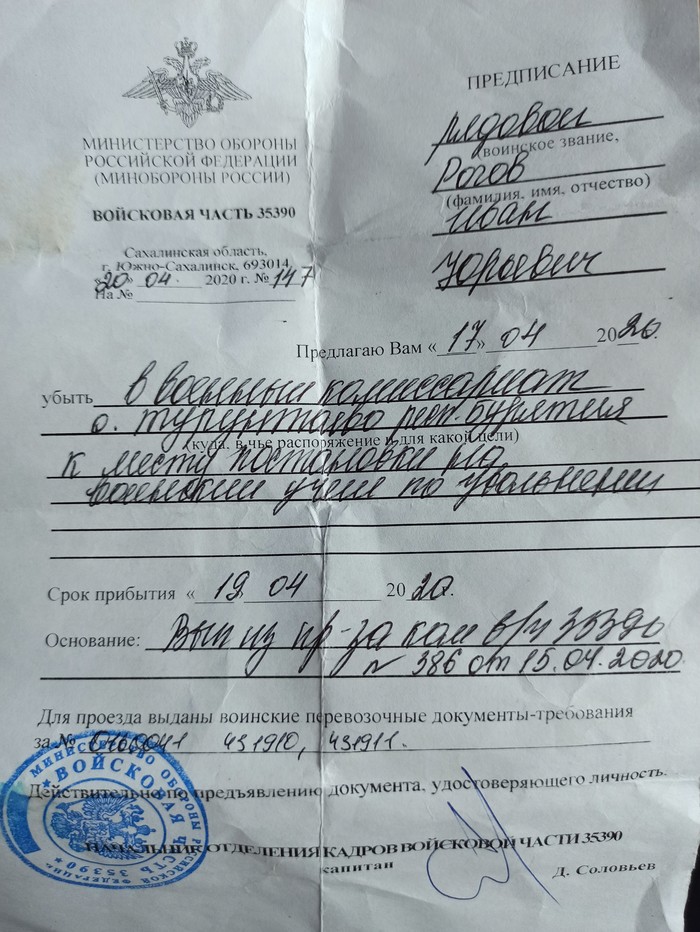 МИНИСТЕРСТВО ОБОРОНЫ
РОССИЙСКОЙ ФЕДЕРАЦИИ
(МИНОБОРОНЫ РОССИИ)
ВОЙСКОВАЯ ЧАСТЬ 35390
Сахалинская область,
г. Южно-Сахалинск, 693014
«20» 04. 2020 г. № 147
На №
ПРЕДПИСАНИЕ
рядовой
(воинское звание,
Рогов
(фамилия, имя, отчество)
Иван
Юрьевич
Предлагаю Вам «17» 04 2020.
убыть в военный комиссариат
с. Турунтаево респ. Бурятия
(куда, в чье распоряжение и для какой цели)
к месту постановки на
воинский учет по увольнении
Срок прибытия «19 04 2020.
Основание: Вып из пр-за ком в/ч 35390
№ 386 от 15.04.2020
Для проезда выданы воинские перевозочные документы-требования
за № 431910, 431911.
Действительно по предъявлению документа, удостоверяющего личность.
НАЧАЛЬНИК ОТДЕЛЕНИЯ КАДРОВ ВОЙСКОВОЙ ЧАСТИ 35390
капитан
Д. Соловьев
МИНИСТЕРСТВО ОБОРОНЫ РОССИЙСКОЙ ФЕДЕРАЦИИ
ВОЙСКОВАЯ ЧАСТЬ 35390